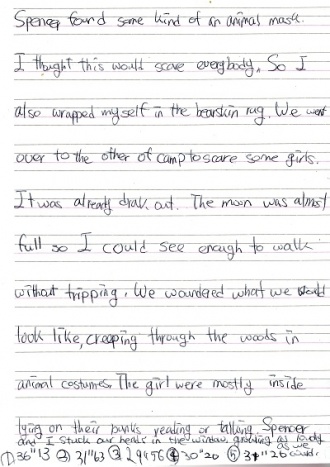 Spencer found some kind of an animal mask.
I thought this would scare everybody. So I
also wrapped myself in the bearskin rug. We went
over to the other of camp to scare some girls.
It was already drak out. The moon was almost
full so I could see enough to walk
without tripping. We woundered what we would
look like, creeping through the woods in
animal costumes. The girl were mostly inside
lying on their bunks reading or talking. Spencer
and I stuck our heads in the window, growling as loudly as we could.
① 36"13 ② 31"63 ③ 29"56 ④ 30"20 ⑤ 31"26